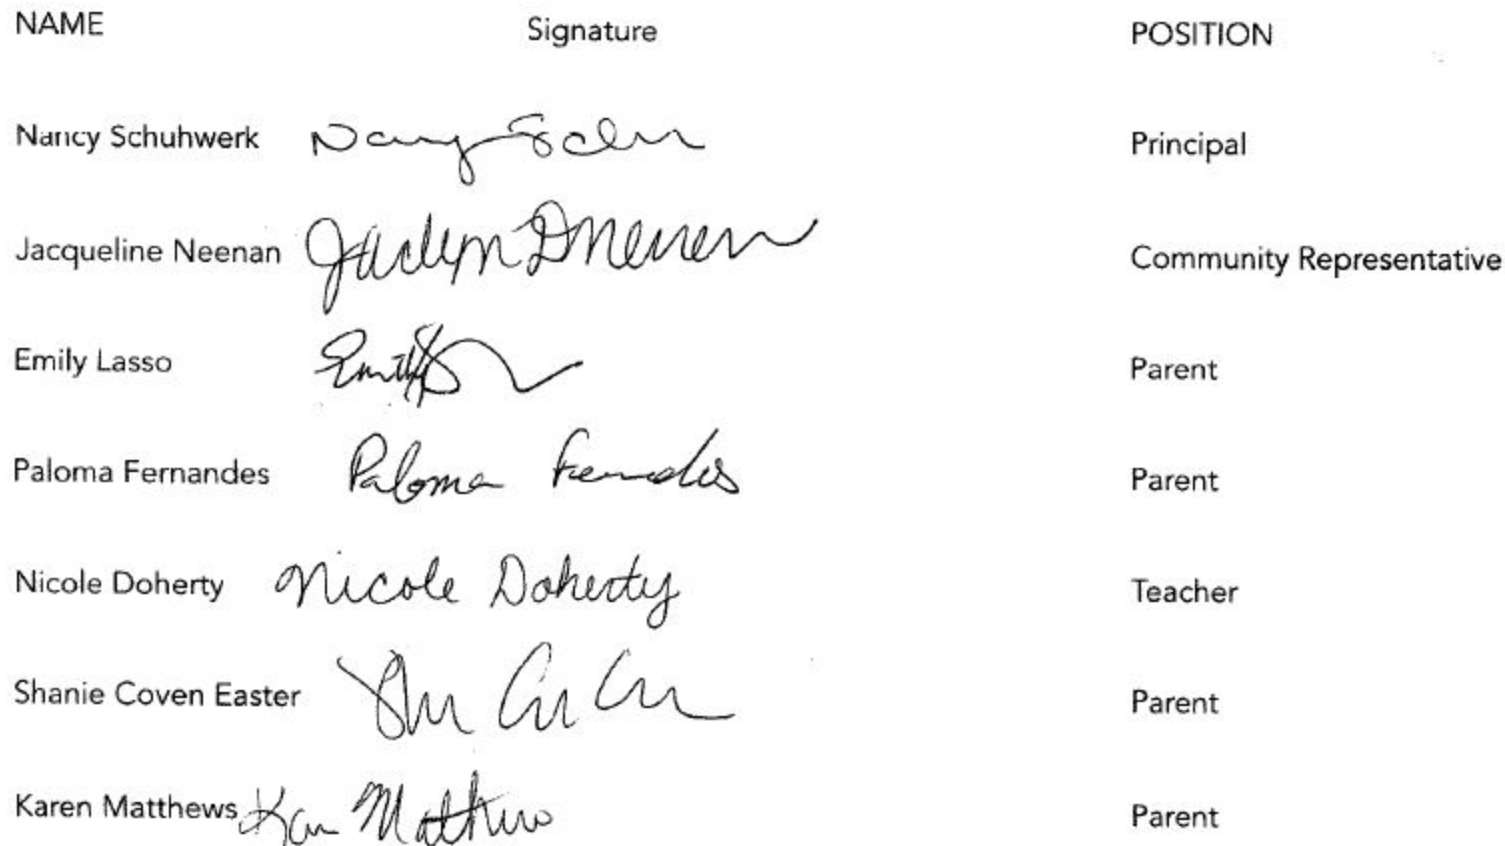 NAME Signature POSITION
Nancy Schuhwerk Principal
Jacqueline Neenan Community Representative
Emily Lasso Emily Parent
Paloma Fernandes Paloma Fernandes Parent
Nicole Doherty Nicole Doherty Teacher
Shanie Coven Easter Parent
Karen Matthews Parent